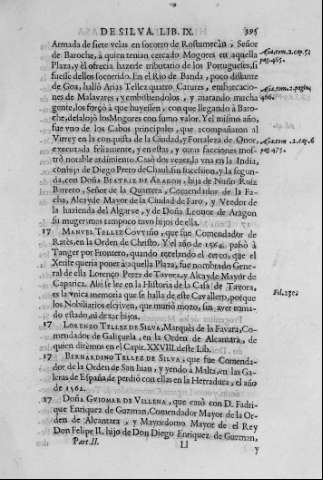 DE SILVA. LIB. IX. 395
Armada de siete velas en socorro de Rostumecan, Señor
de Baroche, à quien tenian cercado Mogores en aquella
Plaza, y èl ofrecia hazerse tributario de los Portugueses, si
fuesse dellos socorrido. En el Rio de Banda, poco distante
de Goa, hallò Arias Tellez quatro Catures, embarcacio-
nes de Malavares, y embistiendolos, y matando mucha
gente, los forçò à que huyessen, con que llegando à Baro-
che, desalojò los Mogores con sumo valor. Y el mismo año,
fue vno de los Cabos principales, que acompañaron al
Virrey en la conquista de la Ciudad, y Fortaleza de Onor,
executada felizmente, y en estas, y otras facciones mos-
trò notable ardimiento. Casò dos vezes, la vna en la India,
con hija de Diego Preto de Chaul, sin succession, y la segun-
da, con Doña BEATRIZ DE ARAGON, hija de Nuño Ruiz
Barreto, Señor de la Quarteira, Comendador de la Fa-
cha, Alcayde Mayor de la Ciudad de Faro, y Veedor de
la hazienda del Algarve, y de Doña Leonor de Aragon
su muger, con tampoco tuvo hijos de ella.
17 MANUEL TELLEZ COUTIÑO, que fue Comendador de
Rates, en la Orden de Christo. Y el año de 1564. passò à
Tanger por Frontero, quando rezelando el cerco, que el
Xerife queria poner à aquella Plaza, fue nombrado Gene-
ral de ella Lorenço Perez de Tavora, y Alcayde Mayor de
Caparica. Assi se lee en la Historia de la Casa de Tavora,
es la vnica memoria que se halla de este Cavallero, porque
los Nobiliarios escriven, que muriò moço, sin aver toma-
do estado, ni dexar hijos.
17 LORENZO TELLEZ DE SILVA, Marquès de la Favara, Co-
mendador de Galiçuela, en la Orden de Alcantara, de
quien dirèmos en el Capit. XXVIII. deste Lib.
17 BERNARDINO TELLEZ DE SILVA, que fue Comenda-
dor de la Orden de San Juan, y yendo à Malta, en las Ga-
leras de España, se perdiò con ellas en la Herradura, el año
de 1562.
17 DOÑA GUIOMAR DE VILLENA, que casò con D. Fadri-
que Enriquez de Guzman, Comendador Mayor de la Or-
den de Alcantara, y Mayordomo Mayor de el Rey
Don Felipe II. hijo de Don Diego Enriquez de Guzman,
Part. II. Ll y
Asia, tom. 2. cap. 5.
pag. 465.
Asia, tom. 2. pagina
466.
Asia, tom. 2. cap. 6
pag. 471.